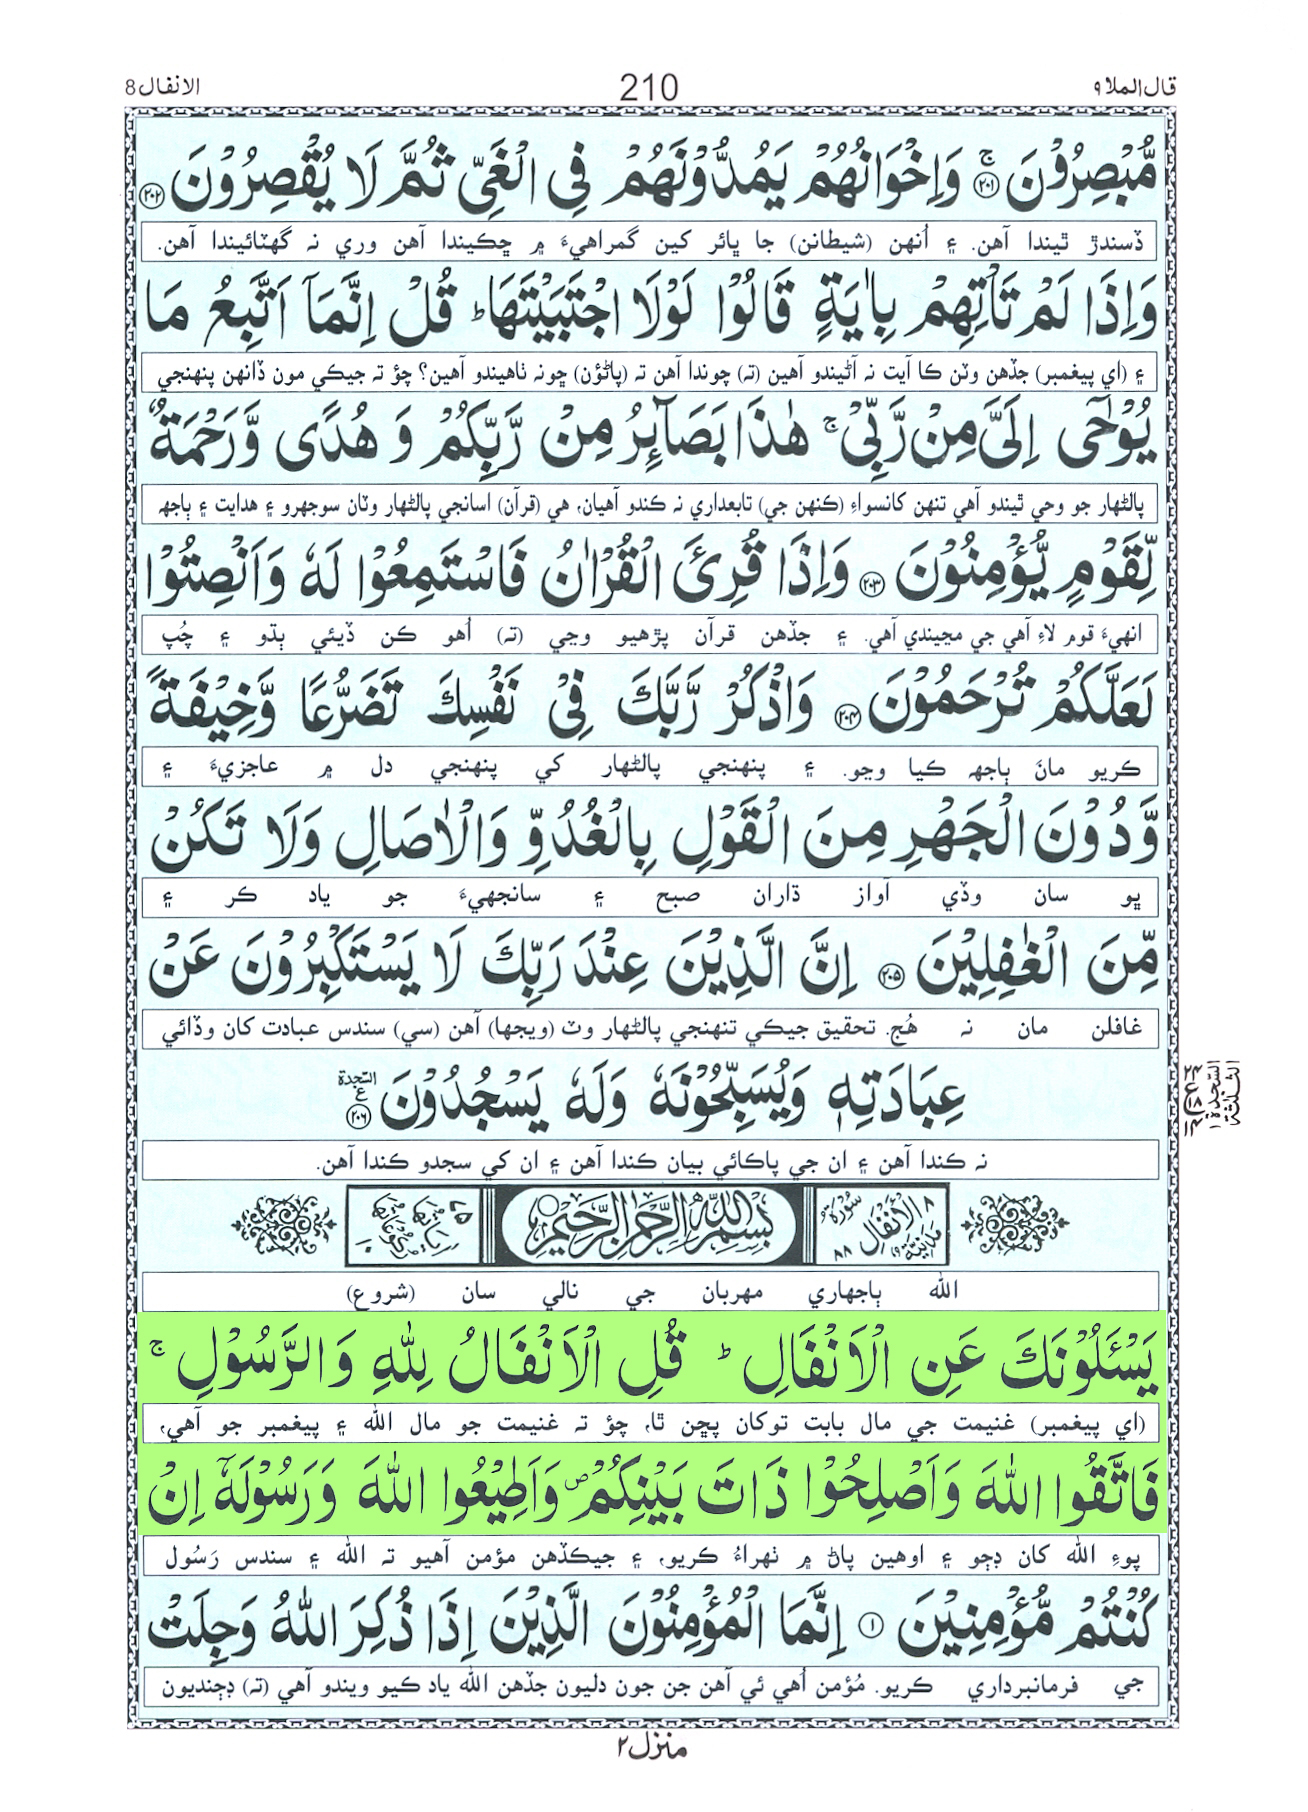 قال الملا ٩ 210 الانفال 8
مُّبْصِرُوْنَ ۚ﴿۲۰۱﴾ وَاِخْوَانُهُمْ يَمُدُّوْنَهُمْ فِى الْغَىِّ ثُمَّ لَا يُقْصِرُوْنَ ﴿۲۰۲﴾
ڏسندڙ ٿيندا آهن. ۽ اُنهن (شيطانن) جا ڀائر کين گمراهيءَ ۾ ڇڪيندا آهن وري نہ گهٽائيندا آهن.
وَاِذَا لَمْ تَاْتِهِمْ بِاٰيَةٍ قَالُوْا لَوْلَا اجْتَبَيْتَهَا ؕ قُلْ اِنَّمَآ اَتَّبِعُ مَا
۽ (اي پيغمبر) جڏهن وٽن ڪا آيت نہ آڻيندو آهين (تہ) چوندا آهن تہ (پاڻؤن) ڇونہ ٺاهيندو آهين؟ چؤ تہ جيڪي مون ڏانهن پنهنجي
يُوْحٰٓى اِلَىَّ مِنْ رَّبِّىْ ۚ هٰذَا بَصَآئِرُ مِنْ رَّبِّكُمْ وَ هُدًى وَّرَحْمَةٌ
پالڻهار جو وحي ٿيندو آهي تنهن کانسواءِ (ڪنهن جي) تابعداري نہ ڪندو آهيان، هي (قرآن) اسانجي پالڻهار وٽان سوجهرو ۽ هدايت ۽ ٻاجھ
لِّقَوْمٍ يُّؤْمِنُوْنَ ﴿۲۰۳﴾ وَاِذَا قُرِئَ الْقُرْاٰنُ فَاسْتَمِعُوْا لَهٗ وَاَنْصِتُوْا
انهيءَ قوم لاءِ آهي جي مڃيندي آهي. ۽ جڏهن قرآن پڙهيو وڃي (تہ) اُهو ڪن ڏيئي ٻڌو ۽ چُپ
لَعَلَّكُمْ تُرْحَمُوْنَ ﴿۲۰۴﴾ وَاذْكُرْ رَّبَّكَ فِىْ نَفْسِكَ تَضَرُّعًا وَّخِيْفَةً
ڪريو مانَ ٻاجھ ڪيا وڃو. ۽ پنهنجي پالڻهار کي پنهنجي دل ۾ عاجزيءَ ۽
وَّدُوْنَ الْجَهْرِ مِنَ الْقَوْلِ بِالْغُدُوِّ وَالْاٰصَالِ وَلَا تَكُنْ
ڀو سان وڏي آواز ڌاران صبح ۽ سانجهيءَ جو ياد ڪر ۽
مِّنَ الْغٰفِلِيْنَ ﴿۲۰۵﴾ اِنَّ الَّذِيْنَ عِنْدَ رَبِّكَ لَا يَسْتَكْبِرُوْنَ عَنْ
غافلن مان نہ هُج. تحقيق جيڪي تنهنجي پالڻهار وٽ (ويجها) آهن (سي) سندس عبادت کان وڏائي
عِبَادَتِهٖ وَيُسَبِّحُوْنَهٗ وَلَهٗ يَسْجُدُوْنَ ﴿۲۰۶﴾ السجدة ع
نہ ڪندا آهن ۽ ان جي پاڪائي بيان ڪندا آهن ۽ ان کي سجدو ڪندا آهن.
۸ سُوْرَةُ الْاَنْفَالِ مَدَنِيَّةٌ ۸۸ بِسْمِ اللهِ الرَّحْمٰنِ الرَّحِيْمِ اٰيَاتُهَا ۷۵ رُكُوْعَاتُهَا ۱۰
الله ٻاجهاري مهربان جي نالي سان (شروع)
يَسْـَٔلُوْنَكَ عَنِ الْاَنْفَالِ ؕ قُلِ الْاَنْفَالُ لِلّٰهِ وَالرَّسُوْلِ ۚ
(اي پيغمبر) غنيمت جي مال بابت توکان پڇن ٿا، چؤ تہ غنيمت جو مال الله ۽ پيغمبر جو آهي،
فَاتَّقُوا اللّٰهَ وَاَصْلِحُوْا ذَاتَ بَيْنِكُمْ ۪ وَاَطِيْعُوا اللّٰهَ وَرَسُوْلَهٗٓ اِنْ
پوءِ الله کان ڊڄو ۽ اوهين پاڻ ۾ ٺهراءُ ڪريو، ۽ جيڪڏهن مؤمن آهيو تہ الله ۽ سندس رَسُول
كُنْتُمْ مُّؤْمِنِيْنَ ﴿۱﴾ اِنَّمَا الْمُؤْمِنُوْنَ الَّذِيْنَ اِذَا ذُكِرَ اللّٰهُ وَجِلَتْ
جي فرمانبرداري ڪريو. مُؤمن اُهي ئي آهن جن جون دليون جڏهن الله ياد ڪيو ويندو آهي (تہ) ڊڄنديون
منزل ۲